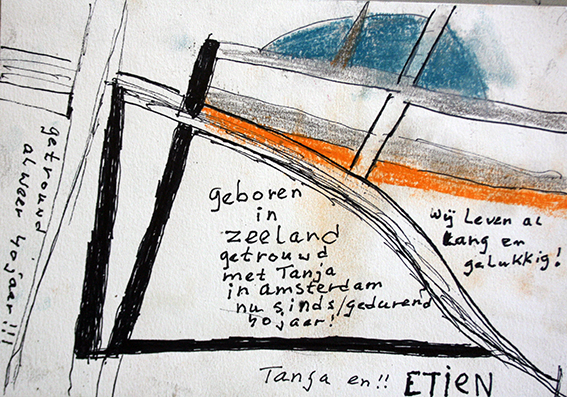 getrouwd
alweer 40 jaar!!!
geboren
in
zeeland
getrouwd
met Tanja
in amsterdam
nu sinds/gedurend
40jaar!
wij Leven al
Lang en
gelukkig!
Tanja en!! ETiEN